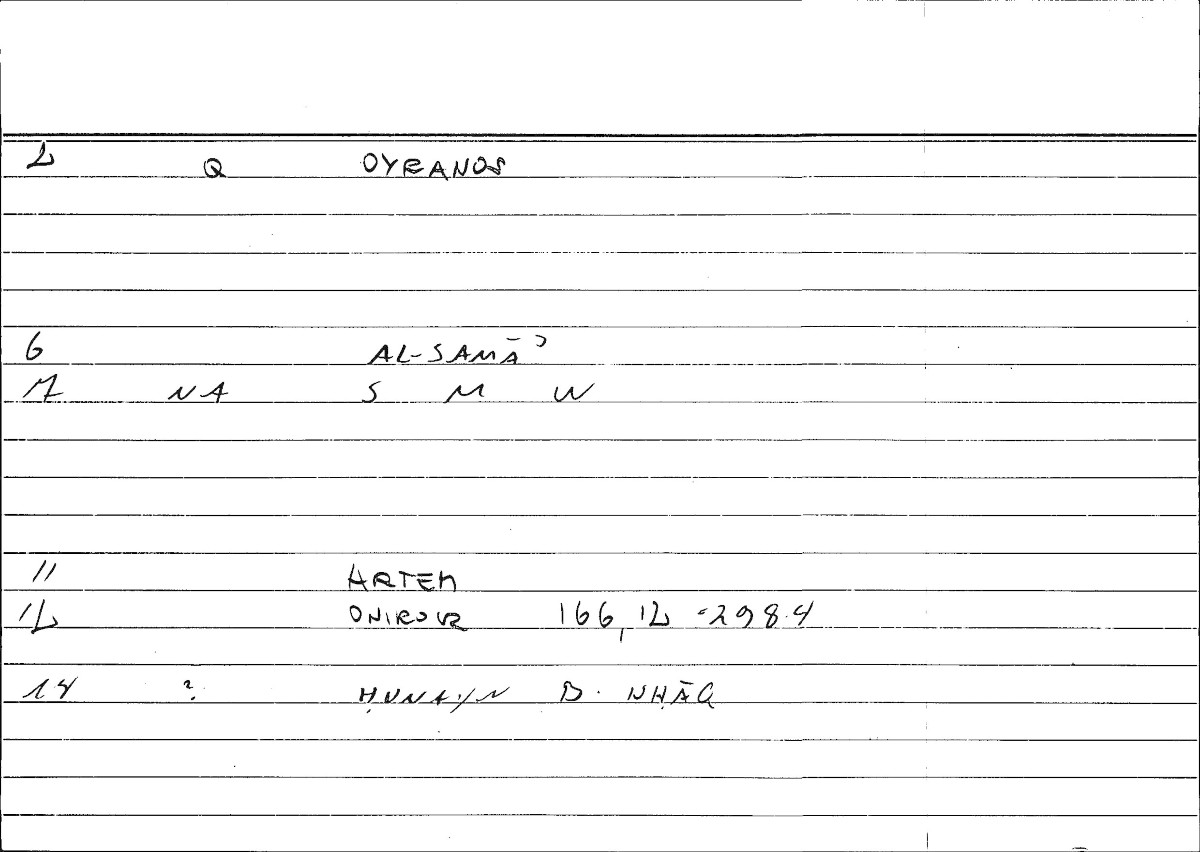 2 Q OYRANOS
6 AL-SAMĀʾ
7 NA S M W
11 ARTEM
12 ONIROCR 166,12 = 298.4
14 ? ḤUNAYN B. ISḤĀQ